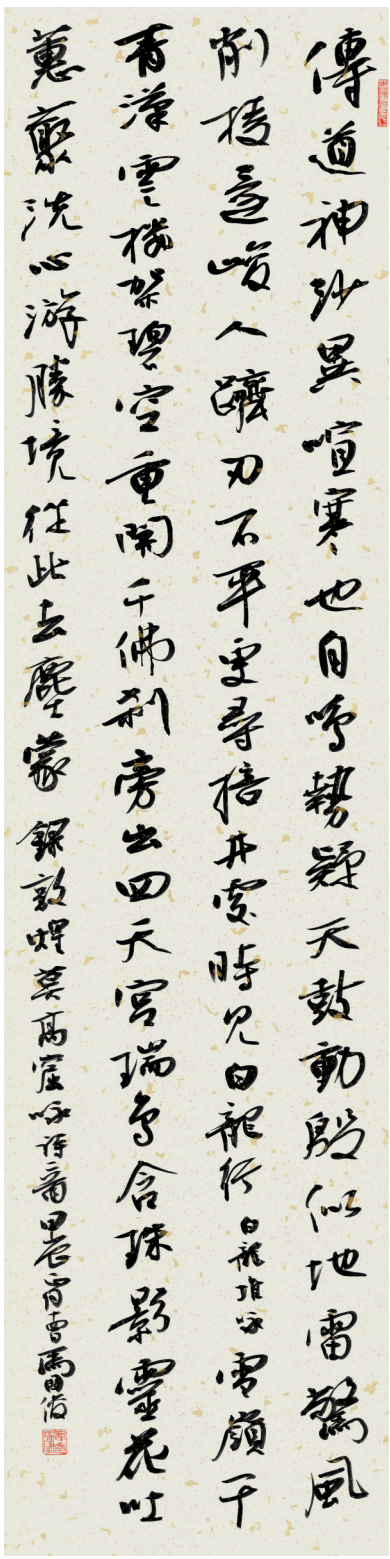 傳道神沙異喧寒也自鳴勢疑天鼓動殷似地雷驚風
削稜還峻人躋刃不平更尋掊井處時見白龍行白龍堆咏雪嶺干
青漢雲樓架碧空重開千佛剎旁出四天宮瑞鳥含珠影靈花吐
蕙叢洗心游勝境從此去塵蒙錄敦煌莫高窟咏诗二首甲辰